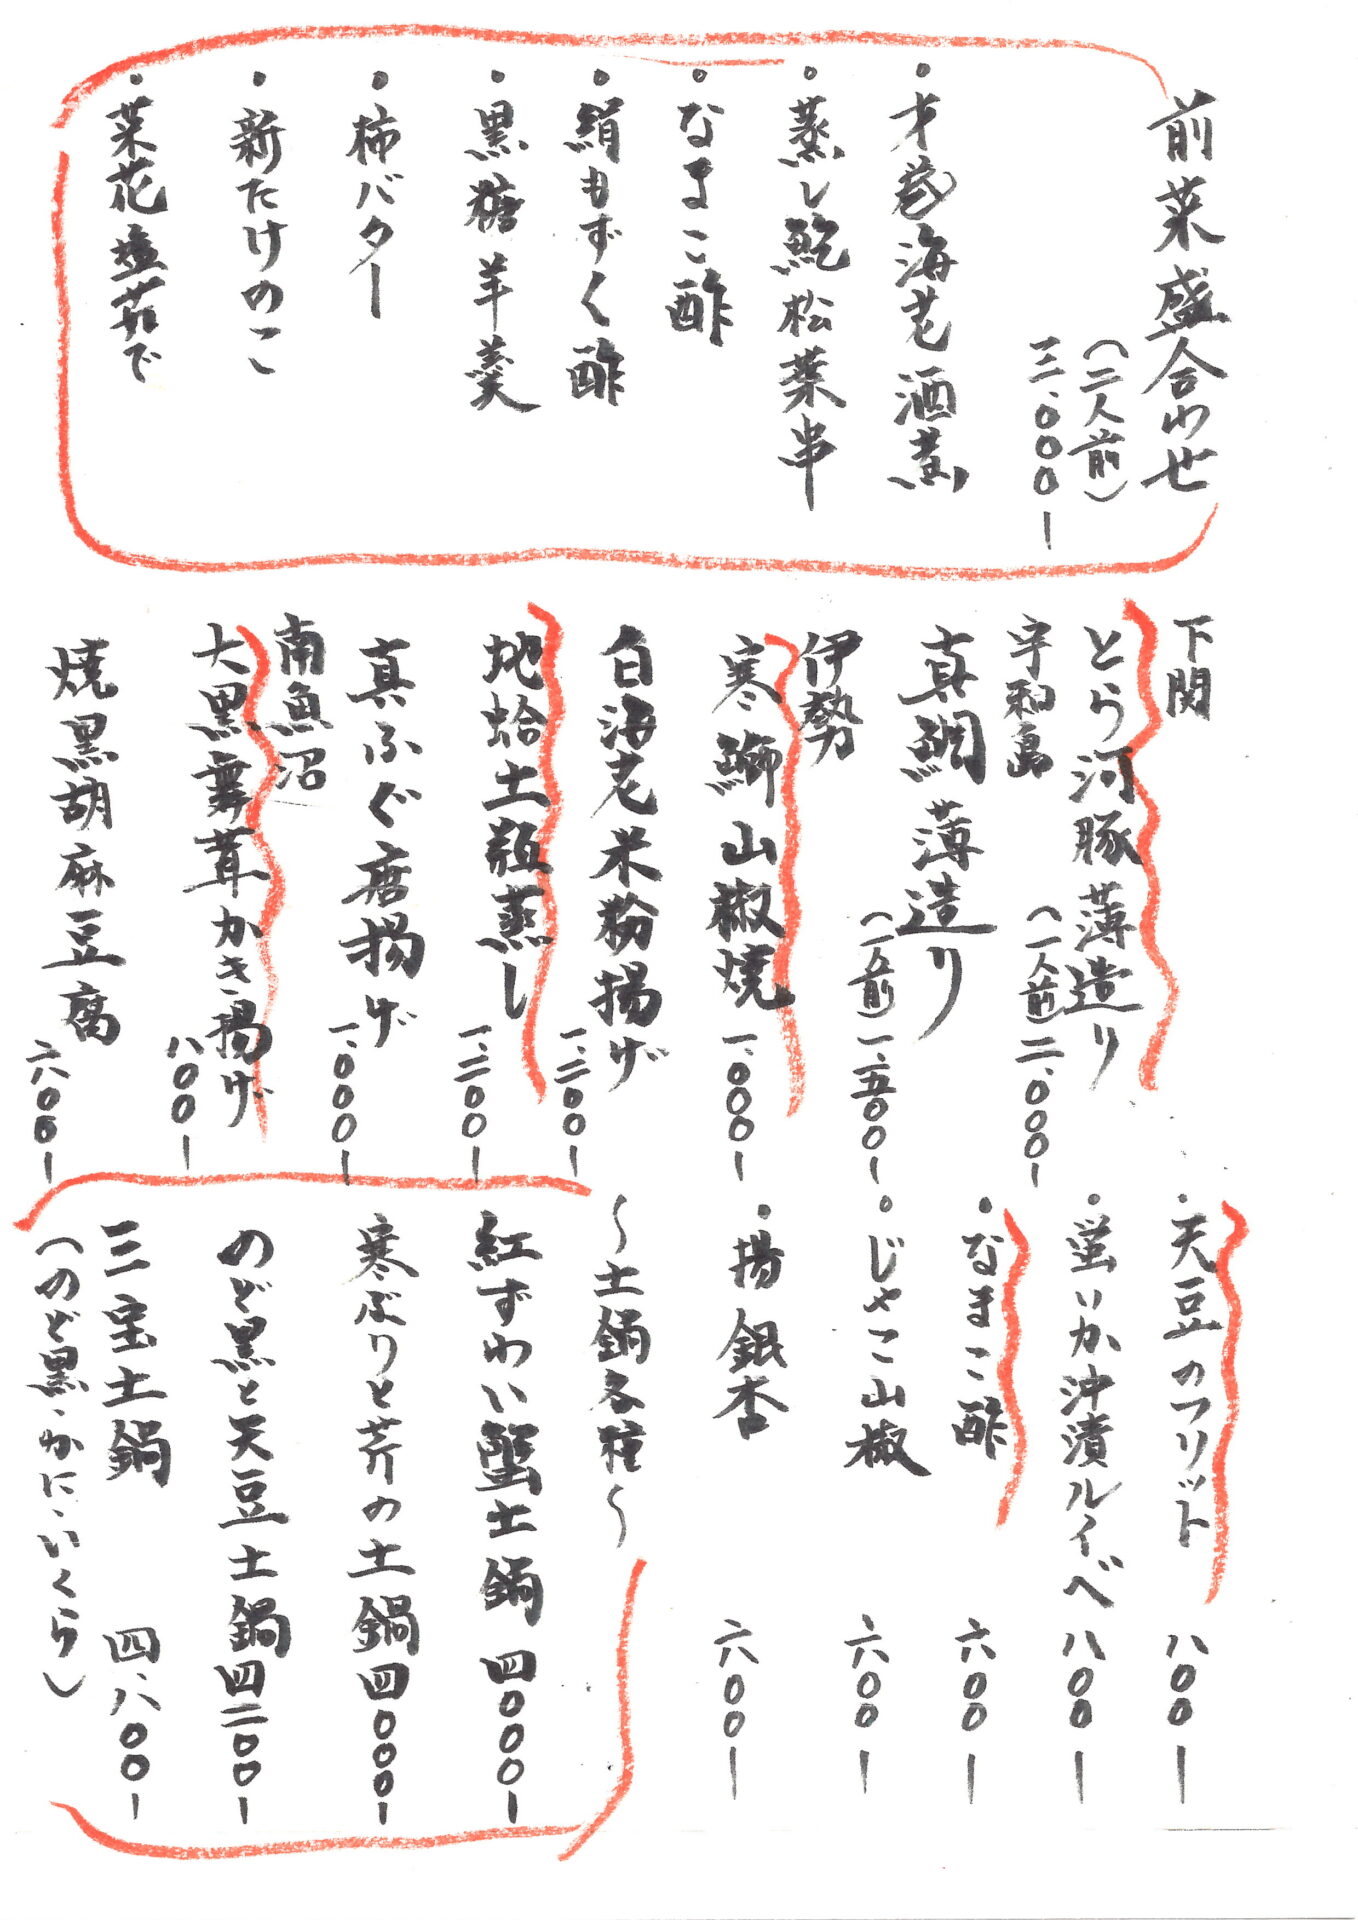 前菜盛合わせ
(二人前)
三、000-
・才巻海老酒煮
・蒸し鮑松葉串
・なまこ酢
・絹もずく酢
・黒糖羊羹
・柿バター
・新たけのこ
・菜花塩茹で
下関
とら河豚薄造り
(一人前)二、000-
宇和島
真鯛薄造り
(一人前)一、五00-
伊勢
寒鰤山椒焼
一、000-
白海老米粉揚げ
一、二00-
地蛤土瓶蒸し
一、二00-
真ふぐ唐揚げ
一、000-
南魚沼
大黒舞茸かき揚げ
八00-
焼黒胡麻豆腐
六00-
・天豆のフリット 八00-
・蛍いか沖漬ルイベ 八00-
・なまこ酢 六00-
・じゃこ山椒 六00-
・揚銀杏 六00-
〜土鍋各種〜
紅ずわい蟹土鍋 四000-
寒ぶりと芹の土鍋 四000-
のど黒と天豆土鍋 四二00-
三宝土鍋 四、八00-
(のど黒・かに・いくら)